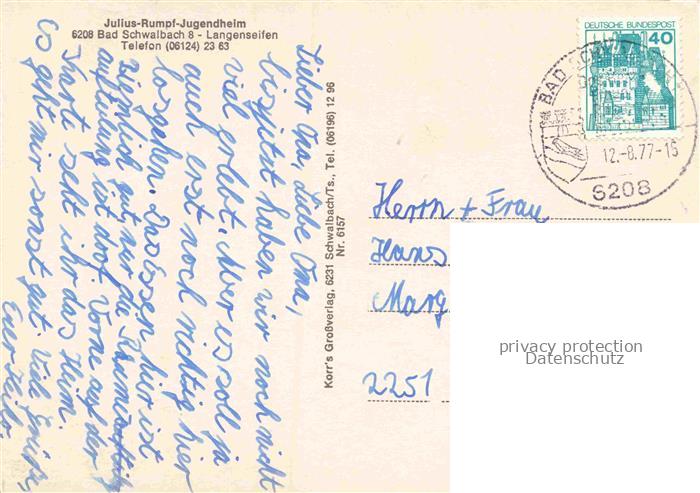 Julius-Rumpf-Jugendheim
6208 Bad Schwalbach 8 - Langenseifen
Telefon (06124) 23 63
Lieber Opa, Liebe Oma,
bis jetzt haben wir noch nicht
viel erlebt. Aber es soll ja
auch erst noch richtig hier
losgehen. Das Essen hier ist
ziemlich gut, nur die
aufteilung ist doof. Vorne auf der
Kart seht ihr das Heim.
Es geht mir sonst gut. Viele Grüße,
Euer Heiko
Korr's Großverlag, 6231 Schwalbach/Ts., Tel. (06196) 12 96
Nr. 6157
DEUTSCHE BUNDESPOST
40
BAD SCHW
12.-8.77-16
6208
Herrn + Frau
Hans
Marg
2251
privacy protection
Datenschutz